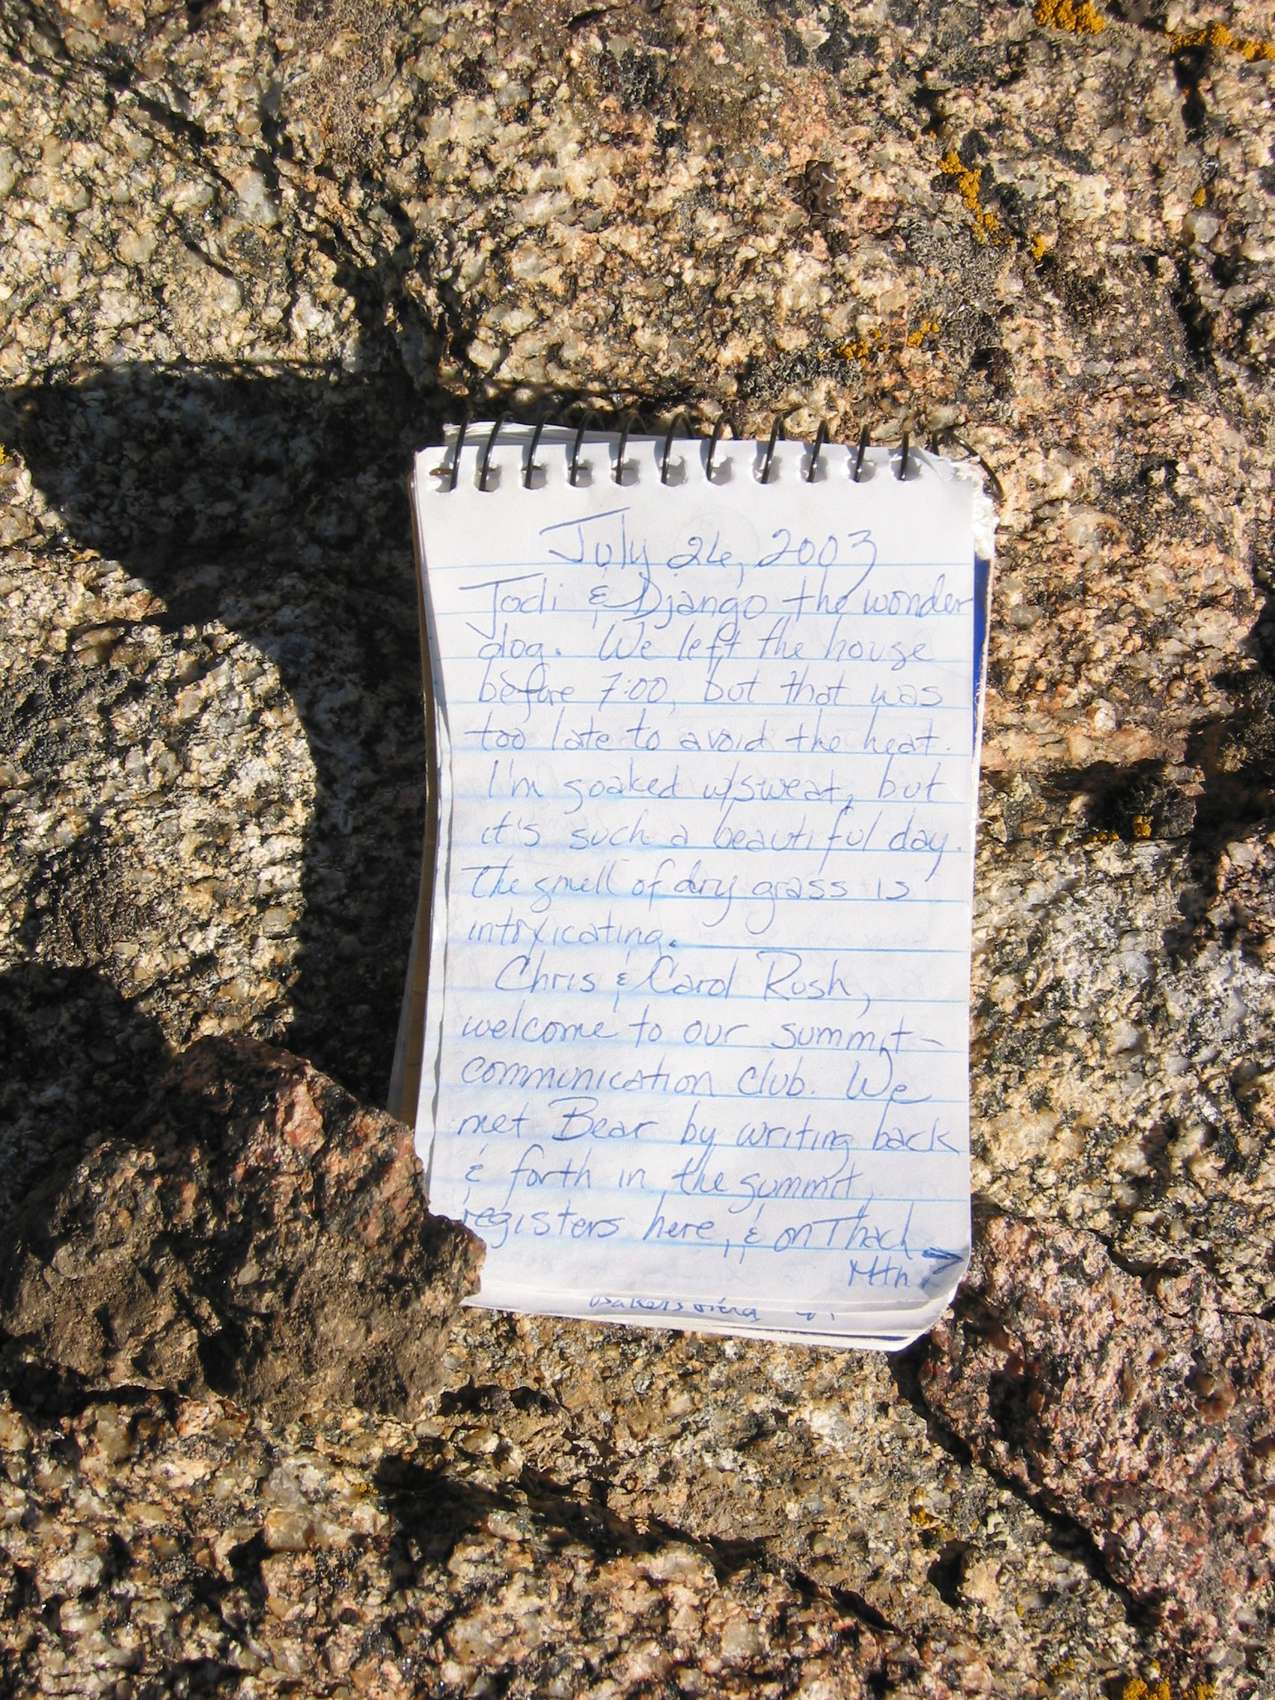 July 26, 2003
Jodi & Django the wonder
dog. We left the house
before 7:00, but that was
too late to avoid the heat.
I'm soaked w/sweat, but
it's such a beautiful day.
The smell of dry grass is
intoxicating.
Chris & Carol Rush,
welcome to our summit-
communication club. We
met Bear by writing back
& forth in the summit
registers here, & on Thach
Mtn.